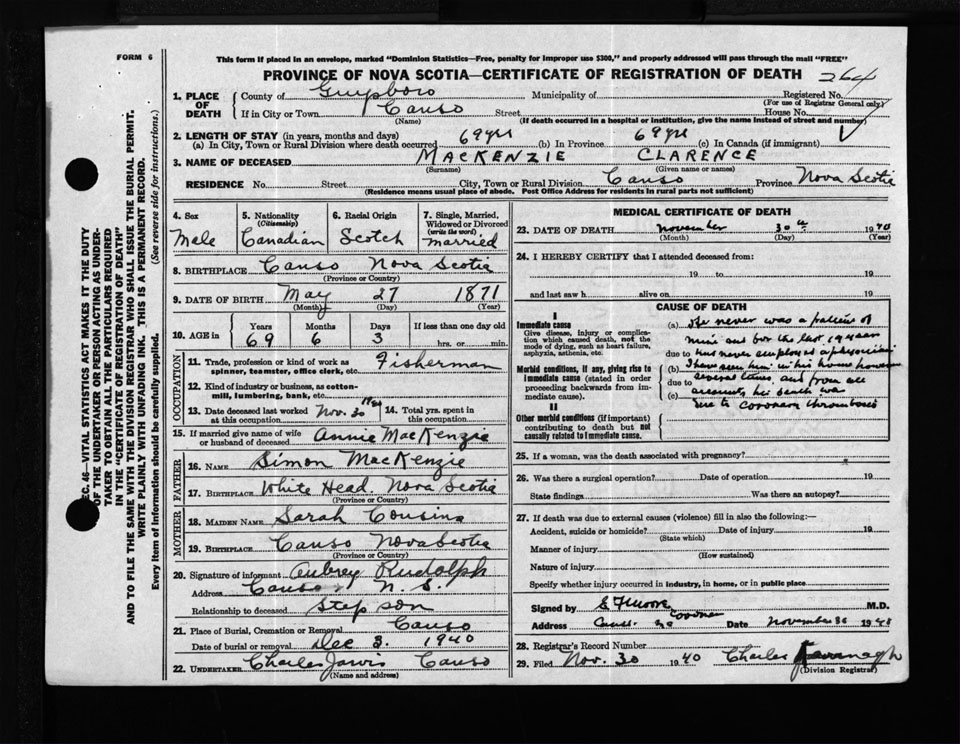 FORM 6
This form if placed in an envelope, marked "Dominion Statistics—Free, penalty for improper use $300," and properly addressed will pass through the mail "FREE"
PROVINCE OF NOVA SCOTIA—CERTIFICATE OF REGISTRATION OF DEATH 264
1. PLACE OF DEATH
County of Guysboro Municipality of Registered No.
(For use of Registrar General only)
If in City or Town Canso Street House No.
(Name) (If death occurred in a hospital or institution, give the name instead of street and number)
2. LENGTH OF STAY (in years, months and days)
(a) In City, Town or Rural Division where death occurred 69 yrs (b) In Province 69 yrs (c) In Canada (if immigrant)
3. NAME OF DECEASED MACKENZIE CLARENCE
(Surname) (Given name or names)
RESIDENCE No. Street City, Town or Rural Division Canso Province Nova Scotia
(Residence means usual place of abode. Post Office Address for residents in rural parts not sufficient)
4. Sex Male
5. Nationality (Citizenship) Canadian
6. Racial Origin Scotch
7. Single, Married, Widowed or Divorced (write the word) married
8. BIRTHPLACE Canso Nova Scotia
(Province or Country)
9. DATE OF BIRTH May 27 1871
(Month) (Day) (Year)
10. AGE in Years Months Days If less than one day old
69 6 3 hrs. or min.
OCCUPATION
11. Trade, profession or kind of work as spinner, teamster, office clerk, etc. Fisherman
12. Kind of industry or business, as cotton-mill, lumbering, bank, etc.
13. Date deceased last worked at this occupation Nov. 30 1940
14. Total yrs. spent in this occupation
15. If married give name of wife or husband of deceased Annie MacKenzie
FATHER
16. NAME Simon MacKenzie
17. BIRTHPLACE White Head Nova Scotia
(Province or Country)
MOTHER
18. MAIDEN NAME Sarah Cousins
19. BIRTHPLACE Canso Nova Scotia
(Province or Country)
20. Signature of informant Aubrey Rudolph
Address Canso N. S.
Relationship to deceased Step son
21. Place of Burial, Cremation or Removal Canso
Date of burial or removal Dec 3. 1940
22. UNDERTAKER Charles Jarvis Canso
(Name and address)
MEDICAL CERTIFICATE OF DEATH
23. DATE OF DEATH November 30th 1940
(Month) (Day) (Year)
24. I HEREBY CERTIFY that I attended deceased from:
19 to 19
and last saw h alive on 19
CAUSE OF DEATH
I
Immediate cause
Give disease, injury or complication which caused death, not the mode of dying, such as heart failure, asphyxia, asthenia, etc.
Morbid conditions, if any, giving rise to immediate cause (stated in order proceeding backwards from immediate cause).
II
Other morbid conditions (if important) contributing to death but not causally related to immediate cause.
(a) never was a patient of
mine and for the last 19 years
due to has never employed a physician
(b) I have seen him in his home
due to several times, and from all
(c) accounts, his death was
due to coronary thrombosis
25. If a woman, was the death associated with pregnancy?
26. Was there a surgical operation? Date of operation 19
State findings Was there an autopsy?
27. If death was due to external causes (violence) fill in also the following:—
Accident, suicide or homicide? Date of injury 19
(State which)
Manner of injury
(How sustained)
Nature of injury
Specify whether injury occurred in industry, in home, or in public place
Signed by Moore M.D.
Coroner
Address Canso Date November 30 1940
28. Registrar's Record Number
29. Filed Nov. 30 1940 Charles Kavanagh
(Division Registrar)
SEC. 46—VITAL STATISTICS ACT MAKES IT THE DUTY
OF THE UNDERTAKER OR PERSON ACTING AS UNDER-
TAKER TO OBTAIN ALL THE PARTICULARS REQUIRED
IN THE "CERTIFICATE OF REGISTRATION OF DEATH"
AND TO FILE THE SAME WITH THE DIVISION REGISTRAR WHO SHALL ISSUE THE BURIAL PERMIT.
WRITE PLAINLY WITH UNFADING INK. THIS IS A PERMANENT RECORD.
Every item of Information should be carefully supplied. (See reverse side for instructions.)